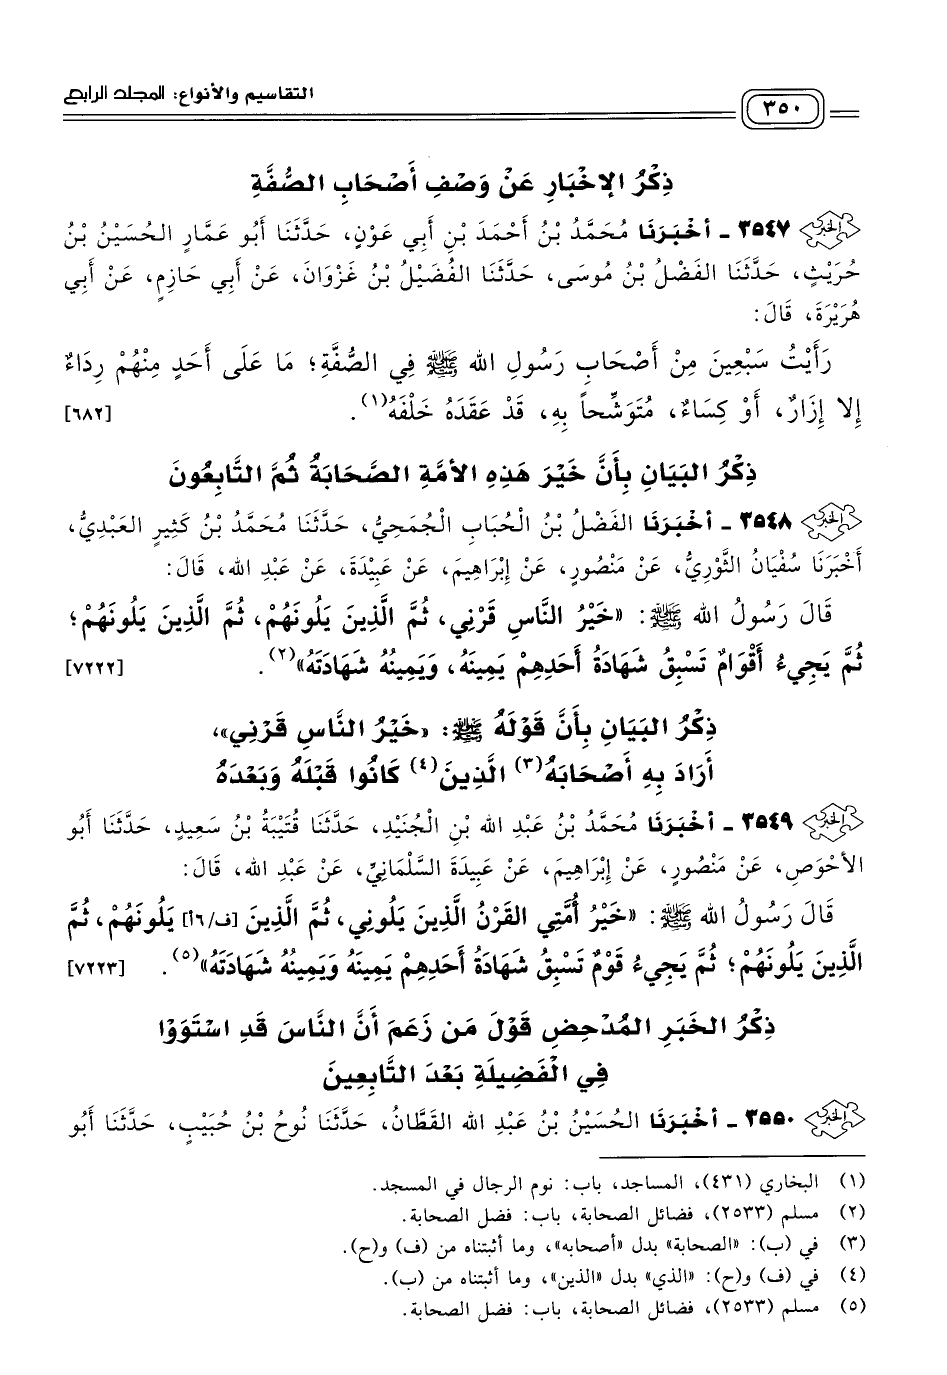 التقاسيم والأنواع: المجلد الرابع
٣٥٠
ذِكْرُ الإخْبَارِ عَنْ وَصْفِ أَصْحَابِ الصُّفَّةِ
الخبر ٣٥٤٧ ـ أخْبَرَنَا مُحَمَّدُ بْنُ أَحْمَدَ بْنِ أَبِي عَوْنٍ، حَدَّثَنَا أَبُو عَمَّارٍ الحُسَيْنُ بْنُ
حُرَيْثٍ، حَدَّثَنَا الفَضْلُ بْنُ مُوسَى، حَدَّثَنَا الفُضَيْلُ بْنُ غَزْوَانَ، عَنْ أَبِي حَازِمٍ، عَنْ أَبِي
هُرَيْرَةَ، قَالَ:
رَأَيْتُ سَبْعِينَ مِنْ أَصْحَابِ رَسُولِ الله ﷺ فِي الصُّفَّةِ؛ مَا عَلَى أَحَدٍ مِنْهُمْ رِدَاءٌ
إِلا إِزَارٌ، أَوْ كِسَاءٌ، مُتَوَشِّحاً بِهِ، قَدْ عَقَدَهُ خَلْفَهُ(١). [٦٨٢]
ذِكْرُ البَيَانِ بِأَنَّ خَيْرَ هَذِهِ الأمَّةِ الصَّحَابَةُ ثُمَّ التَّابِعُونَ
الخبر ٣٥٤٨ ـ أخْبَرَنَا الفَضْلُ بْنُ الْحُبَابِ الْجُمَحِيُّ، حَدَّثَنَا مُحَمَّدُ بْنُ كَثِيرٍ العَبْدِيُّ،
أَخْبَرَنَا سُفْيَانُ الثَّوْرِيُّ، عَنْ مَنْصُورٍ، عَنْ إِبْرَاهِيمَ، عَنْ عَبِيدَةَ، عَنْ عَبْدِ الله، قَالَ:
قَالَ رَسُولُ الله ﷺ: «خَيْرُ النَّاسِ قَرْنِي، ثُمَّ الَّذِينَ يَلُونَهُمْ، ثُمَّ الَّذِينَ يَلُونَهُمْ؛
ثُمَّ يَجِيءُ أَقْوَامٌ تَسْبِقُ شَهَادَةُ أَحَدِهِمْ يَمِينَهُ، وَيَمِينُهُ شَهَادَتَهُ»(٢). [٧٢٢٢]
ذِكْرُ البَيَانِ بِأَنَّ قَوْلَهُ ﷺ: «خَيْرُ النَّاسِ قَرْنِي»،
أَرَادَ بِهِ أَصْحَابَهُ(٣) الَّذِينَ(٤) كَانُوا قَبْلَهُ وَبَعْدَهُ
الخبر ٣٥٤٩ ـ أخْبَرَنَا مُحَمَّدُ بْنُ عَبْدِ الله بْنِ الْجُنَيْدِ، حَدَّثَنَا قُتَيْبَةُ بْنُ سَعِيدٍ، حَدَّثَنَا أَبُو
الأحْوَصِ، عَنْ مَنْصُورٍ، عَنْ إِبْرَاهِيمَ، عَنْ عَبِيدَةَ السَّلْمَانِيِّ، عَنْ عَبْدِ الله، قَالَ:
قَالَ رَسُولُ الله ﷺ: «خَيْرُ أُمَّتِي القَرْنُ الَّذِينَ يَلُونِي، ثُمَّ الَّذِينَ [ف/٦أ] يَلُونَهُمْ، ثُمَّ
الَّذِينَ يَلُونَهُمْ؛ ثُمَّ يَجِيءُ قَوْمٌ تَسْبِقُ شَهَادَةُ أَحَدِهِمْ يَمِينَهُ وَيَمِينُهُ شَهَادَتَهُ»(٥). [٧٢٢٣]
ذِكْرُ الخَبَرِ المُدْحِضِ قَوْلَ مَن زَعَمَ أَنَّ النَّاسَ قَدِ اسْتَوَوْا
فِي الْفَضِيلَةِ بَعْدَ التَّابِعِينَ
الخبر ٣٥٥٠ ـ أخْبَرَنَا الحُسَيْنُ بْنُ عَبْدِ الله القَطَّانُ، حَدَّثَنَا نُوحُ بْنُ حُبَيْبٍ، حَدَّثَنَا أَبُو
(١) البخاري (٤٣١)، المساجد، باب: نوم الرجال في المسجد.
(٢) مسلم (٢٥٣٣)، فضائل الصحابة، باب: فضل الصحابة.
(٣) في (ب): «الصحابة» بدل «أصحابه»، وما أثبتناه من (ف) و(ح).
(٤) في (ف) و(ح): «الذي» بدل «الذين»، وما أثبتناه من (ب).
(٥) مسلم (٢٥٣٣)، فضائل الصحابة، باب: فضل الصحابة.